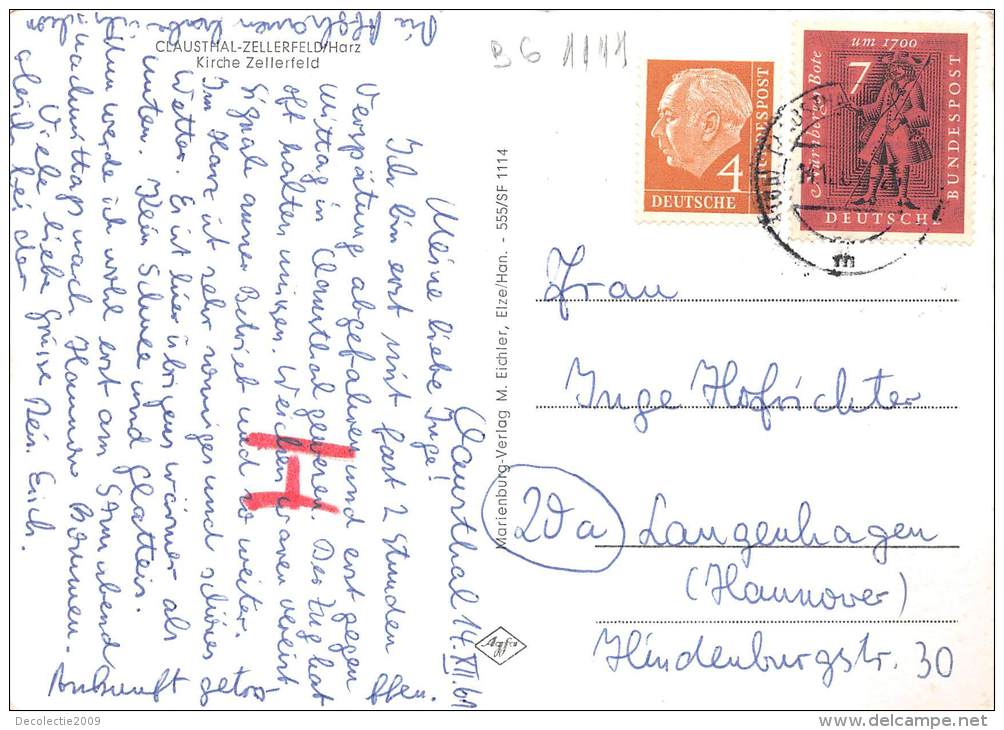 CLAUSTHAL-ZELLERFELD/Harz
Kirche Zellerfeld
BG 1141
Clausthal 14.XII.61
Meine liebe Inge!
Ich bin erst mit fast 2 Stunden
Verspätung abgefahren und erst gegen
Mittag in Clausthal gewesen. Der Zug hat
oft halten müssen. Weichen waren vereist
Signale ausser Betrieb und so weiter.
Im Harz ist sehr sonniges und schönes
Wetter. Es ist hier übrigens wärmer als
unten. Kein Schnee und Glatteis.
Ihnen werde ich wohl erst am Sonnabend
nachmittag nach Hannover kommen.
Viele liebe Grüsse Dein Erich.
gleich bei der
Ankunft getroffen.
Marienburg-Verlag M. Eichler, Elze/Han. - 555/SF 1114
Agfa
4
DEUTSCHE BUNDESPOST
um 1700
7
Nürnberger Bote
DEUTSCHE
BUNDESPOST
m
H
Frau
Inge Hofrichter
20a
Langenhagen
(Hannover)
Hindenburgstr. 30
Decolectie2009
www.delcampe.net